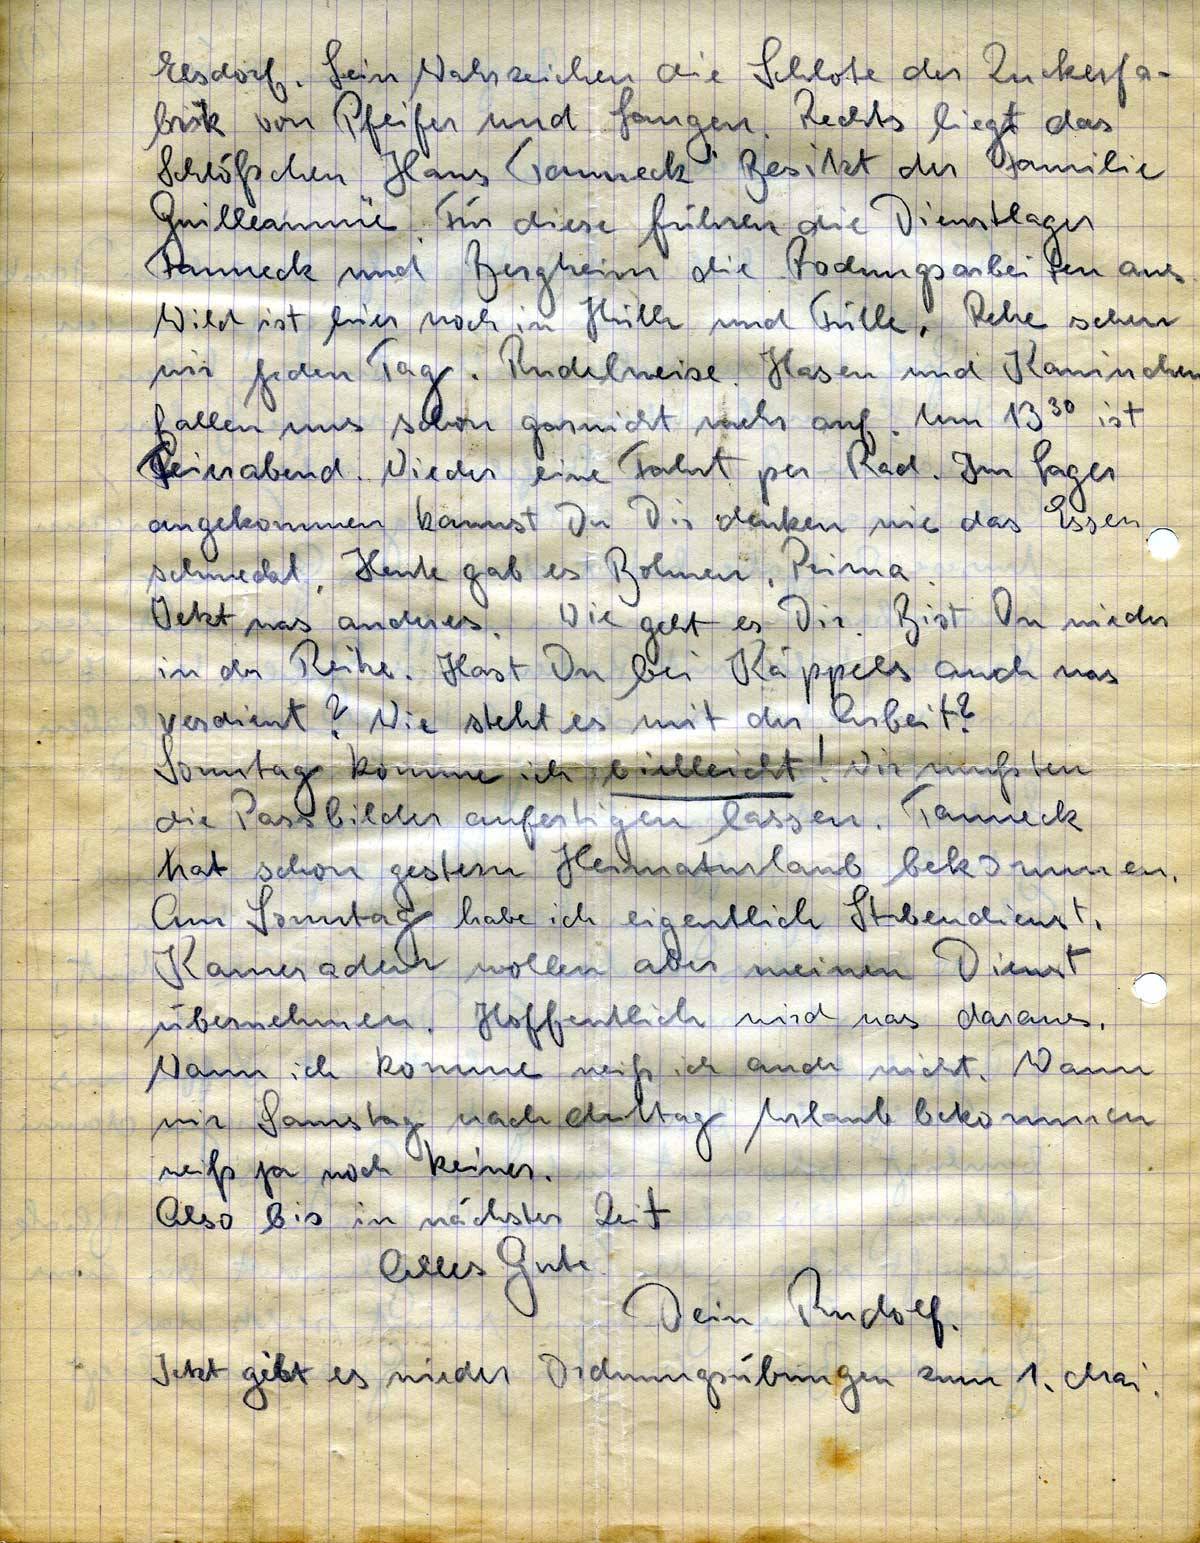 Elsdorf. Sein Wahrzeichen die Schlote der Zuckerfa-
brik von Pfeifer und Langen. Rechts liegt das
Schlößchen Haus "Tanneck" Besitzt der Familie
Guilleaumüe. Für diese führen die Dienstlager
Tanneck und Bergheim die Rodungsarbeiten aus
Wild ist hier noch in Hülle und Fülle. Rehe sehen
wir jeden Tag. Rudelweise. Hasen und Kaninchen
fallen uns schon garnicht mehr auf. Um 13³⁰ ist
Feierabend. Wieder eine Fahrt per Rad. Im Lager
angekommen kannst Du Dir denken wie das Essen
schmeckt. Heute gab es Bohnen, Prima.
Jetzt was anderes. Wie geht es Dir. Bist Du wieder
in der Reihe. Hast Du bei Käppels auch was
verdient? Wie steht es mit der Arbeit?
Sonntag komme ich vielleicht! Wir mußten
die Passbilder anfertigen lassen. Tanneck
hat schon gestern Heimaturlaub bekommen.
Am Sonntag habe ich eigentlich Stubendienst.
Kameraden wollen aber meinen Dienst
übernehmen. Hoffentlich wird was daraus.
Wann ich komme weiß ich auch nicht. Wann
wir Samstag nach Mittag Urlaub bekommen
weiß ja noch keiner.
Also bis in nächster Zeit
Alles Gute
Dein Rudolf.
Jetzt gibt es wieder Ordnungsübungen zum 1. Mai.